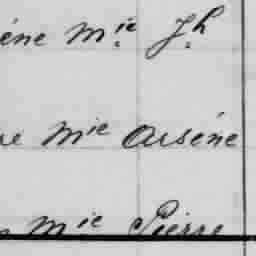 ène Mie Jh
re Mie Arsène
Mie Pierre